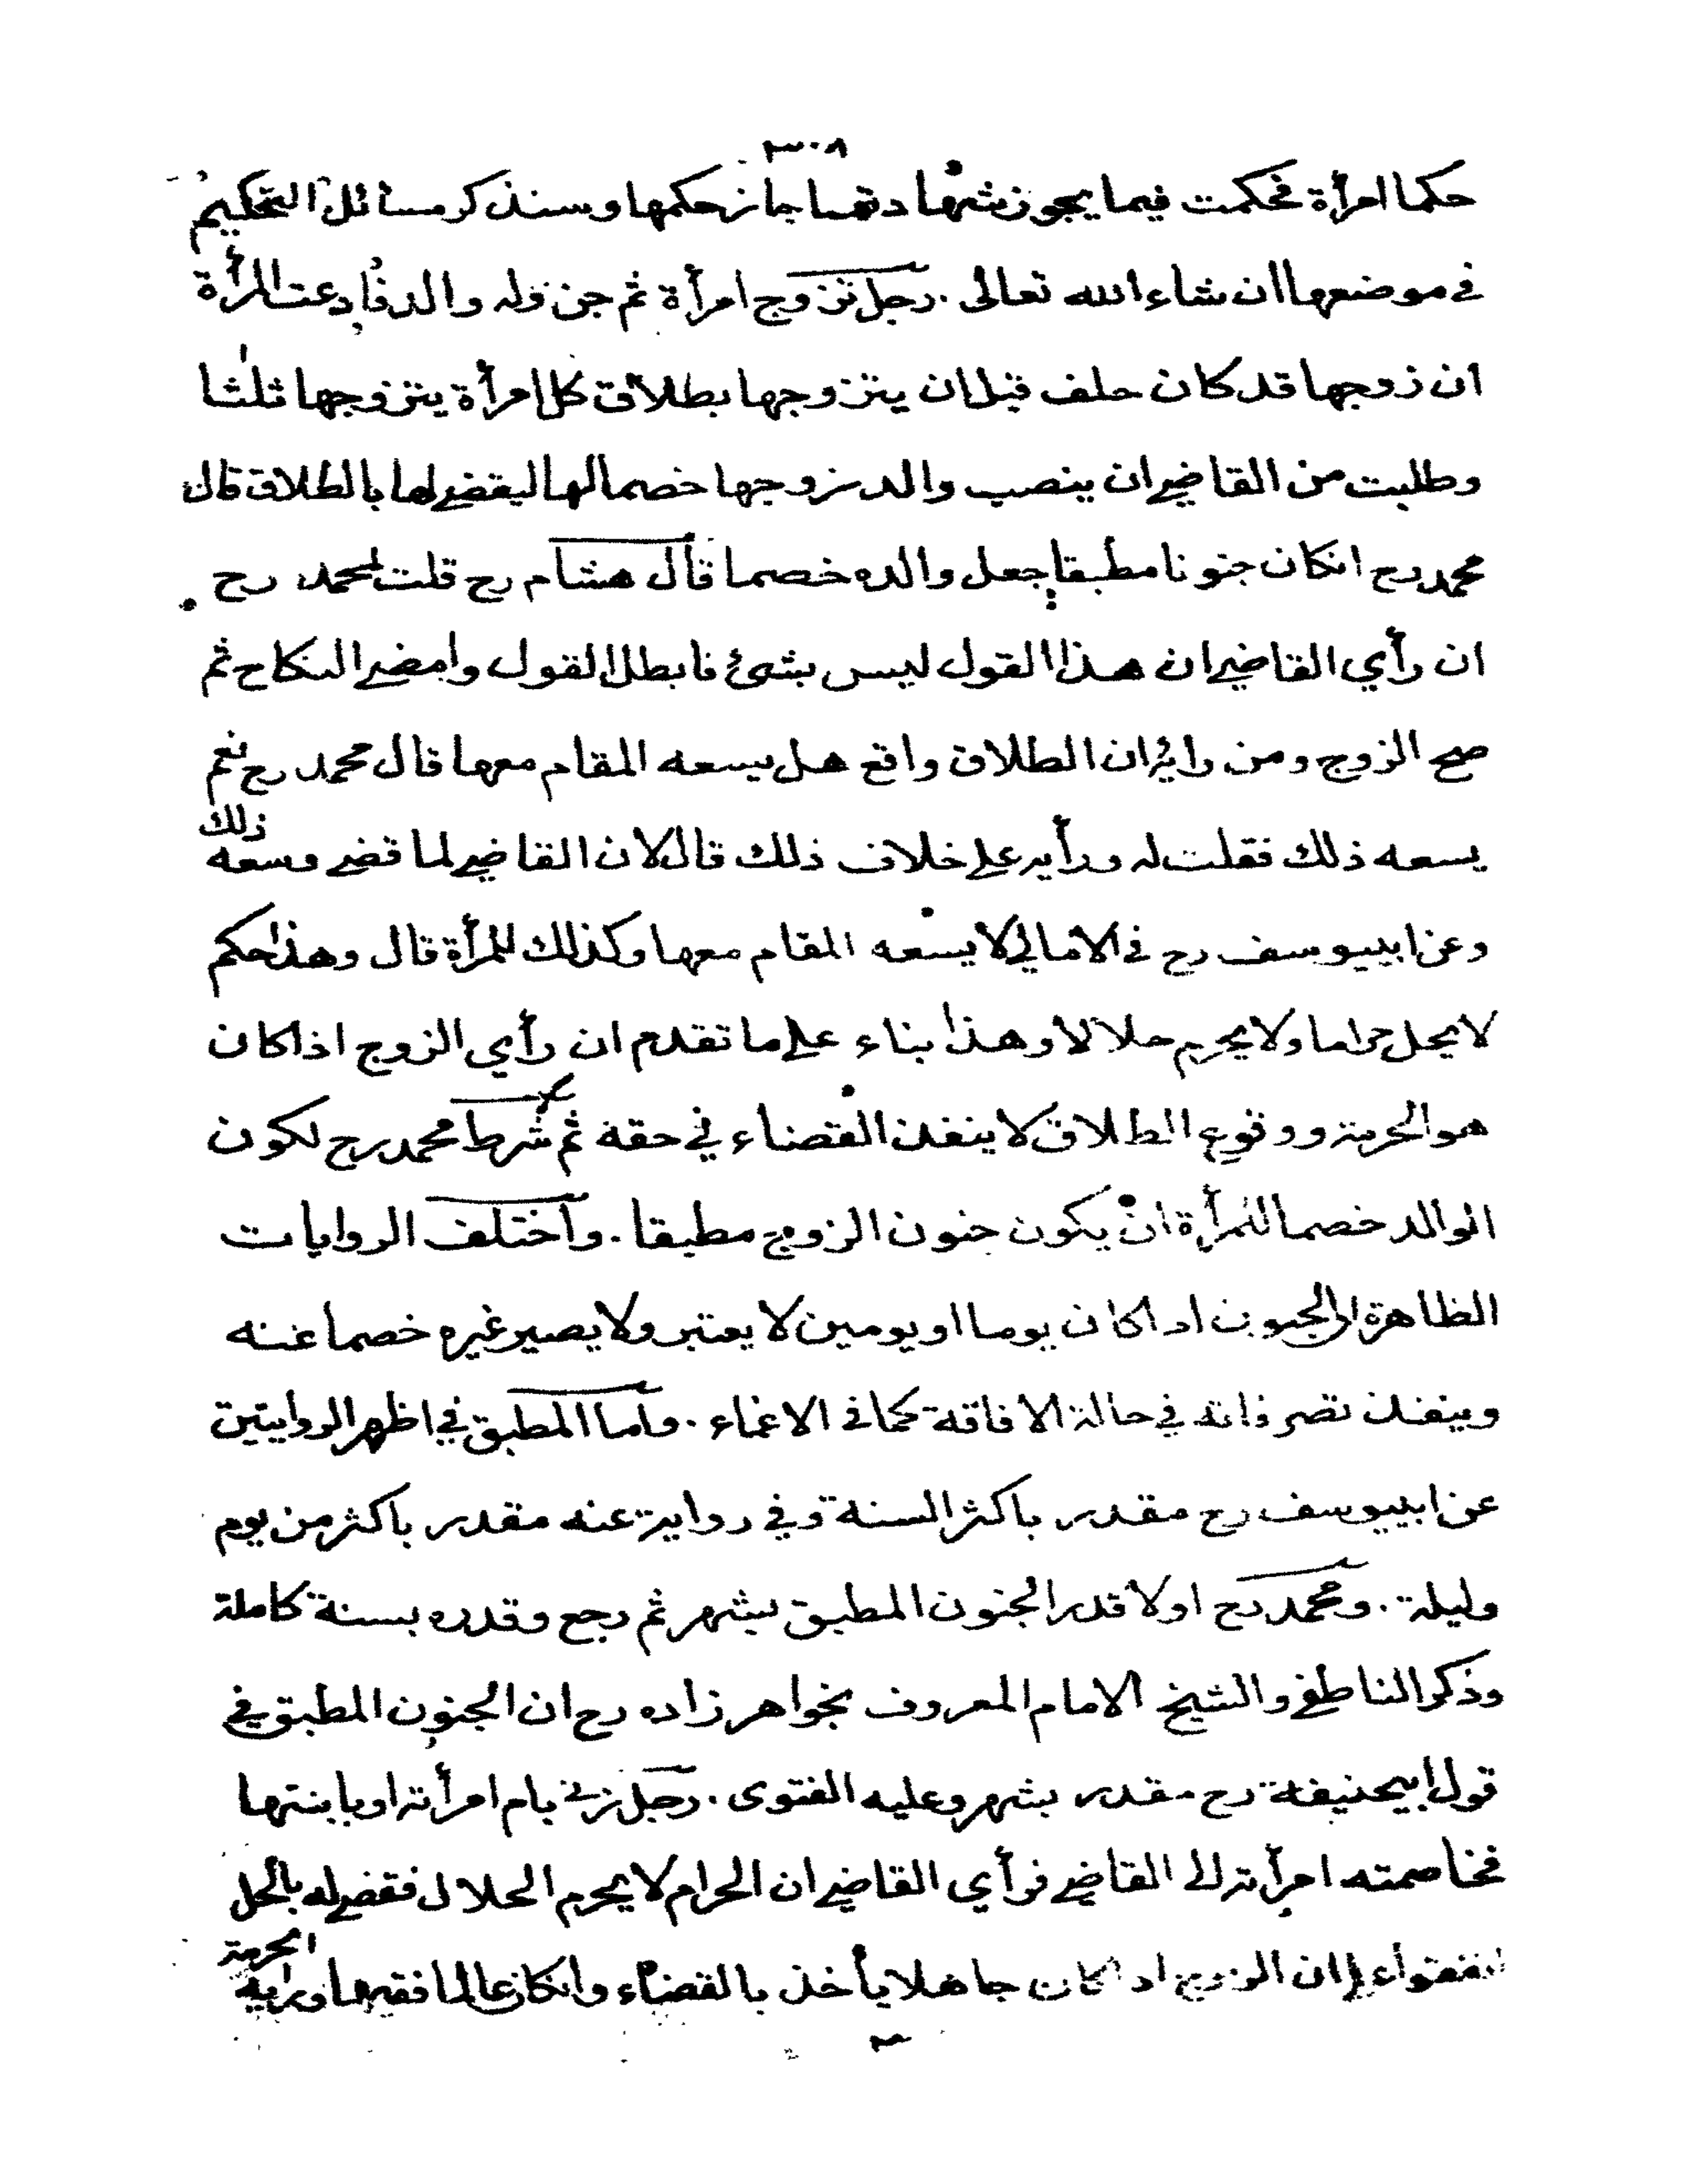 ٣٠٨
حكما امرأة فحكمت فيما يجوز شهادتهما جاز حكمها وسنذكر مسائل التحكيم
في موضعها ان شاء الله تعالى . رجل تزوج امرأة ثم جن وله والد فادعت المرأة
ان زوجها قد كان حلف قبل ان يتزوجها بطلاق كل امرأة يتزوجها ثلثا
وطلبت من القاضي ان ينصب والد زوجها خصما لها ليقضي لها بالطلاق قال
محمد رح انكان جنونا مطبقا جعل والده خصما قال هشام رح قلت لمحمد رح
ان رأي القاضي ان هذا القول ليس بشئ فابطل القول وامضى النكاح ثم
صح الزوج ومن رائه ان الطلاق واقع هل يسعه المقام معها قال محمد رح نعم
يسعه ذلك فقلت له ورأيه على خلاف ذلك قال لان القاضي لما قضى وسعه ذلك
وعن ابييوسف رح في الامالي لا يسعه المقام معها وكذلك المرأة قال وهذا حكم
لا يحل حراما ولا يحرم حلالا وهذا بناء على ما تقدم ان رأي الزوج اذا كان
هو الحرمة ووقوع الطلاق لا ينفذ القضاء في حقه ثم شرط محمد رح لكون
الوالد خصما للمرأة ان يكون جنون الزوج مطبقا . واختلف الروايات
الظاهرة ان الجنون اذا كان يوما او يومين لا يعتبر ولا يصير غيره خصما عنه
وينفذ تصرفاته في حالة الافاقة كما في الاغماء . واما المطبق في اظهر الروايتين
عن ابييوسف رح مقدر باكثر السنة وفي رواية عنه مقدر باكثر من يوم
وليلة . ومحمد رح اولا قدر الجنون المطبق بشهر ثم رجع وقدره بسنة كاملة
وذكر الناطفي والشيخ الامام المعروف بخواهر زاده رح ان الجنون المطبق في
قول ابيحنيفة رح مقدر بشهر وعليه الفتوى . رجل زنى بام امرأته او بابنتها
فخاصمته امرأته الى القاضي فرأي القاضي ان الحرام لا يحرم الحلال فقضى له بالحل
ان الزوج اذا كان جاهلا يأخذ بالقضاء وانكان عالما فقيها ورايه الحرمة